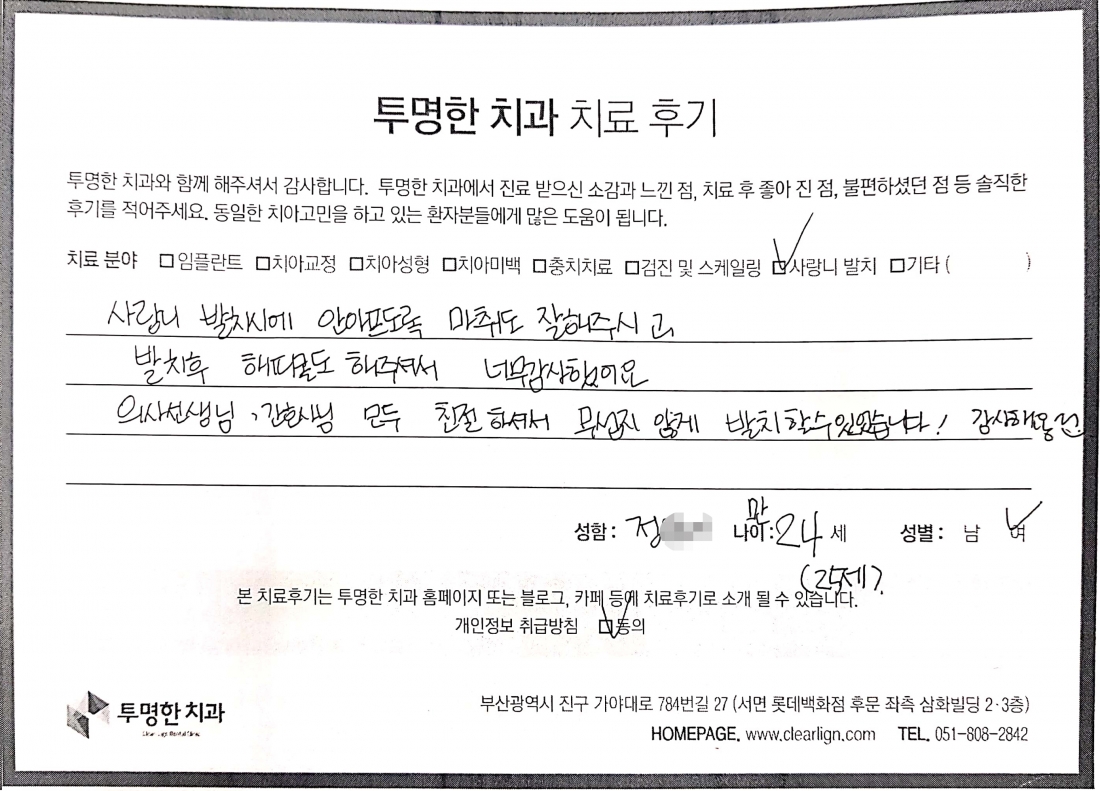 투명한 치과 치료 후기
투명한 치과와 함께 해주셔서 감사합니다. 투명한 치과에서 진료 받으신 소감과 느낀 점, 치료 후 좋아 진 점, 불편하셨던 점 등 솔직한
후기를 적어주세요. 동일한 치아고민을 하고 있는 환자분들에게 많은 도움이 됩니다.
치료 분야 □임플란트 □치아교정 □치아성형 □치아미백 □충치치료 □검진 및 스케일링 ☑사랑니 발치 □기타 ( )
사랑니 발치시에 안아프도록 마취도 잘해주시고
발치후 해따로도 해주셔서 너무감사했어요
의사선생님, 간호사님 모두 친절하셔서 무섭지 않게 발치할수있었습니다! 감사해용
성함: 정 나이: 만 24 세 성별: 남 여
(25세)
본 치료후기는 투명한 치과 홈페이지 또는 블로그, 카페 등에 치료후기로 소개 될 수 있습니다.
개인정보 취급방침 ☑동의
투명한 치과
부산광역시 진구 가야대로 784번길 27 (서면 롯데백화점 후문 좌측 삼화빌딩 2·3층)
HOMEPAGE. www.clearlign.com TEL. 051-808-2842